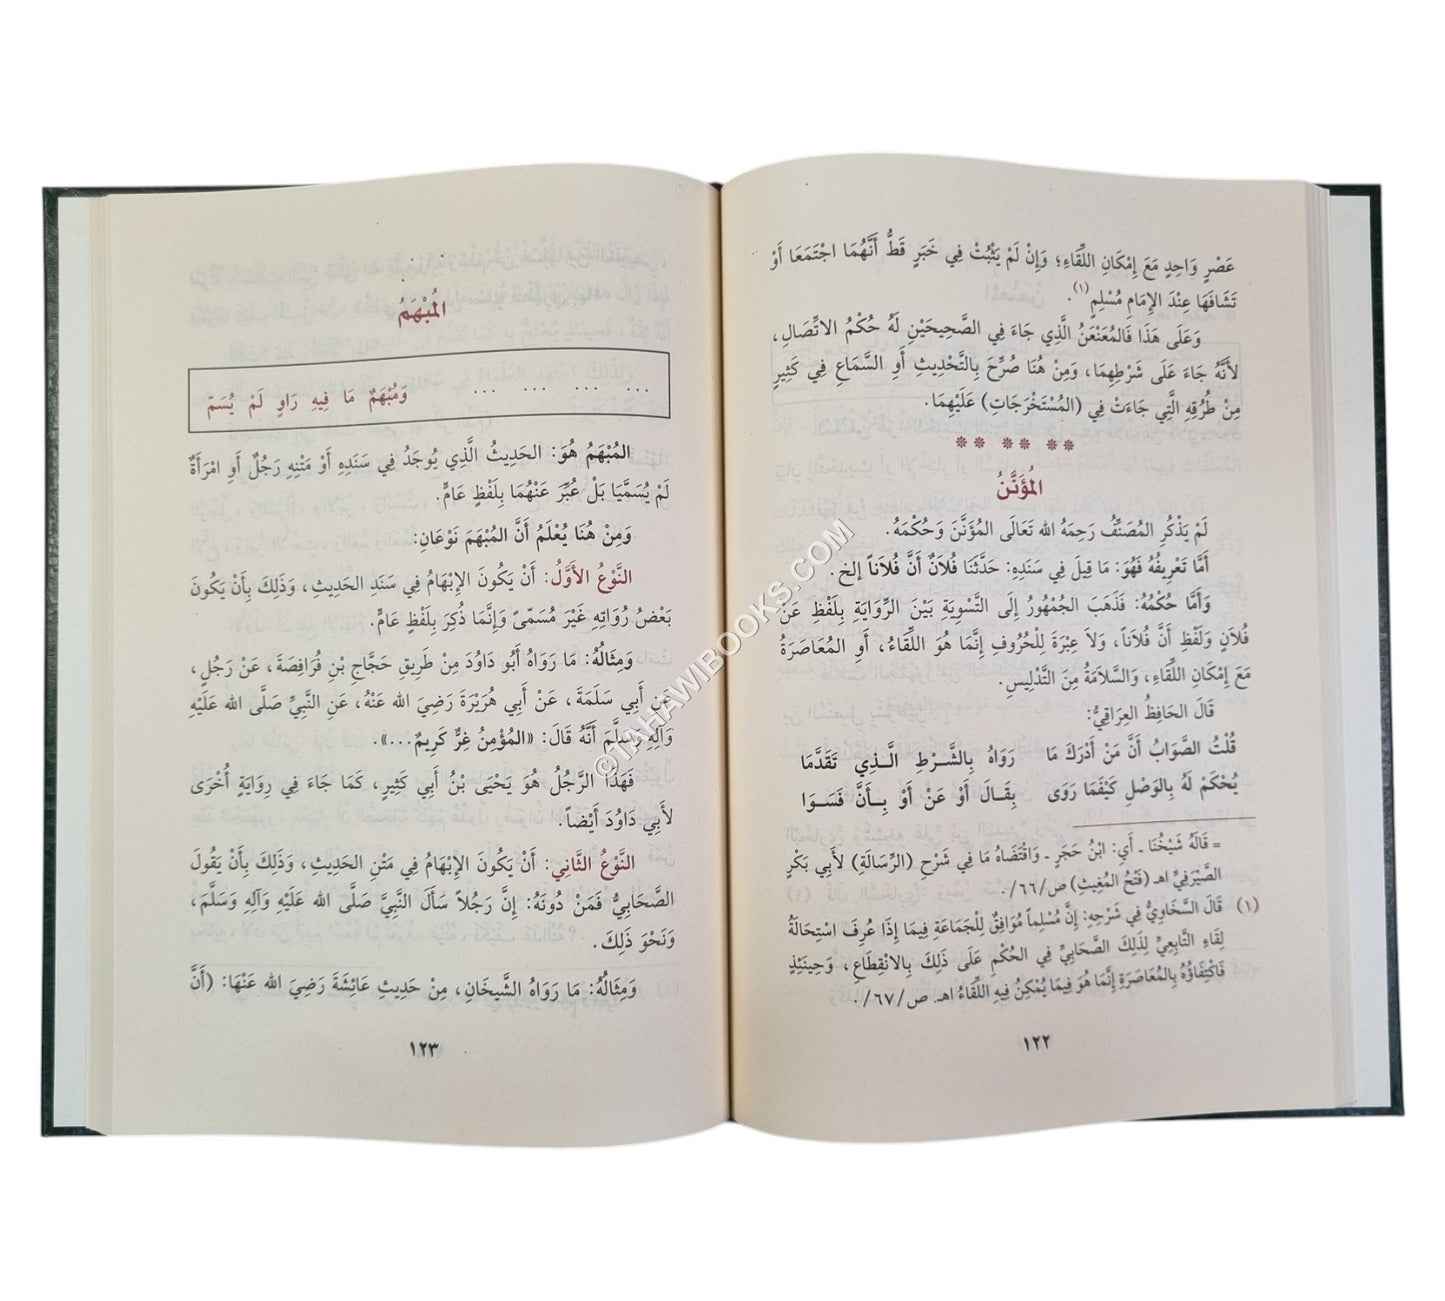 عَصْرٍ وَاحِدٍ مَعَ إِمْكَانِ اللِّقَاءِ؛ وَإِنْ لَمْ يَثْبُتْ فِي خَبَرٍ قَطُّ أَنَّهُمَا اجْتَمَعَا أَوْ
تَشَافَهَا عِنْدَ الإِمَامِ مُسْلِمٍ(١).
وَعَلَى هَذَا فَالمُعَنْعَنُ الَّذِي جَاءَ فِي الصَّحِيحَيْنِ لَهُ حُكْمُ الاتِّصَالِ،
لأَنَّهُ جَاءَ عَلَى شَرْطِهِمَا، وَمِنْ هُنَا صُرِّحَ بِالتَّحْدِيثِ أَوِ السَّمَاعِ فِي كَثِيرٍ
مِنْ طُرُقِهِ الَّتِي جَاءَتْ فِي (المُسْتَخْرَجَاتِ) عَلَيْهِمَا.
** ** **
المُؤَنَّنُ
لَمْ يَذْكُرِ المُصَنِّفُ رَحِمَهُ الله تَعَالَى المُؤَنَّنَ وَحُكْمَهُ.
أَمَّا تَعْرِيفُهُ فَهُوَ: مَا قِيلَ فِي سَنَدِهِ: حَدَّثَنَا فُلَانٌ أَنَّ فُلَاناً إلخ.
وَأَمَّا حُكْمُهُ: فَذَهَبَ الجُمْهُورُ إِلَى التَّسْوِيَةِ بَيْنَ الرِّوَايَةِ بِلَفْظِ عَنْ
فُلَانٍ وَلَفْظِ أَنَّ فُلَاناً، وَلاَ عِبْرَةَ لِلْحُرُوفِ إِنَّمَا هُوَ اللِّقَاءُ، أَوِ المُعَاصَرَةُ
مَعَ إِمْكَانِ اللِّقَاءِ، وَالسَّلَامَةُ مِنَ التَّدْلِيسِ.
قَالَ الحَافِظُ العِرَاقِيُّ:
قُلْتُ الصَّوَابُ أَنَّ مَنْ أَدْرَكَ مَا رَوَاهُ بِالشَّرْطِ الَّذِي تَقَدَّمَا
يُحْكَمْ لَهُ بِالوَصْلِ كَيْفَمَا رَوَى بِقَالَ أَوْ عَنْ أَوْ بِأَنَّ فَسَوَا
= قَالَهُ شَيْخُنَا ـ أَيِ: ابْنُ حَجَرٍ ـ وَاقْتَضَاهُ مَا فِي شَرْحِ (الرِّسَالَةِ) لأَبِي بَكْرٍ
الصَّيْرَفِيِّ اهـ (فَتْحُ المُغِيثِ) ص/٦٦/.
(١) قَالَ السَّخَاوِيُّ فِي شَرْحِهِ: إِنَّ مُسْلِماً مُوَافِقٌ لِلْجَمَاعَةِ فِيمَا إِذَا عُرِفَ اسْتِحَالَةُ
لِقَاءِ التَّابِعِيِّ لِذَلِكَ الصَّحَابِيِّ فِي الحُكْمِ عَلَى ذَلِكَ بِالانْقِطَاعِ، وَحِينَئِذٍ
فَاكْتِفَاؤُهُ بِالمُعَاصَرَةِ إِنَّمَا هُوَ فِيمَا يُمْكِنُ فِيهِ اللِّقَاءُ اهـ. ص/٦٧/.
١٢٢
المُبْهَمُ
... ... ... ... وَمُبْهَمٌ مَا فِيهِ رَاوٍ لَمْ يُسَمّ
المُبْهَمُ هُوَ: الحَدِيثُ الَّذِي يُوجَدُ فِي سَنَدِهِ أَوْ مَتْنِهِ رَجُلٌ أَوِ امْرَأَةٌ
لَمْ يُسَمَّيَا بَلْ عُبِّرَ عَنْهُمَا بِلَفْظٍ عَامٍّ.
وَمِنْ هُنَا يُعْلَمُ أَنَّ المُبْهَمَ نَوْعَانِ:
النَّوْعُ الأَوَّلُ: أَنْ يَكُونَ الإِبْهَامُ فِي سَنَدِ الحَدِيثِ، وَذَلِكَ بِأَنْ يَكُونَ
بَعْضُ رُوَاتِهِ غَيْرَ مُسَمّىً وَإِنَّمَا ذُكِرَ بِلَفْظٍ عَامٍّ.
وَمِثَالُهُ: مَا رَوَاهُ أَبُو دَاوُدَ مِنْ طَرِيقِ حَجَّاجِ بْنِ فُرَافِصَةَ، عَنْ رَجُلٍ،
عَنِ أَبِي سَلَمَةَ، عَنْ أَبِي هُرَيْرَةَ رَضِيَ الله عَنْهُ، عَنِ النَّبِيِّ صَلَّى الله عَلَيْهِ
وَآلِهِ وَسَلَّمَ أَنَّهُ قَالَ: «المُؤْمِنُ غِرٌّ كَرِيمٌ...».
فَهَذَا الرَّجُلُ هُوَ يَحْيَى بْنُ أَبِي كَثِيرٍ، كَمَا جَاءَ فِي رِوَايَةٍ أُخْرَى
لأَبِي دَاوُدَ أَيْضاً.
النَّوْعُ الثَّانِي: أَنْ يَكُونَ الإِبْهَامُ فِي مَتْنِ الحَدِيثِ، وَذَلِكَ بِأَنْ يَقُولَ
الصَّحَابِيُّ فَمَنْ دُونَهُ: إِنَّ رَجُلاً سَأَلَ النَّبِيَّ صَلَّى الله عَلَيْهِ وَآلِهِ وَسَلَّمَ،
وَنَحْوَ ذَلِكَ.
وَمِثَالُهُ: مَا رَوَاهُ الشَّيْخَانِ، مِنْ حَدِيثِ عَائِشَةَ رَضِيَ الله عَنْهَا: (أَنَّ
١٢٣
©TAHAWIBOOKS.COM